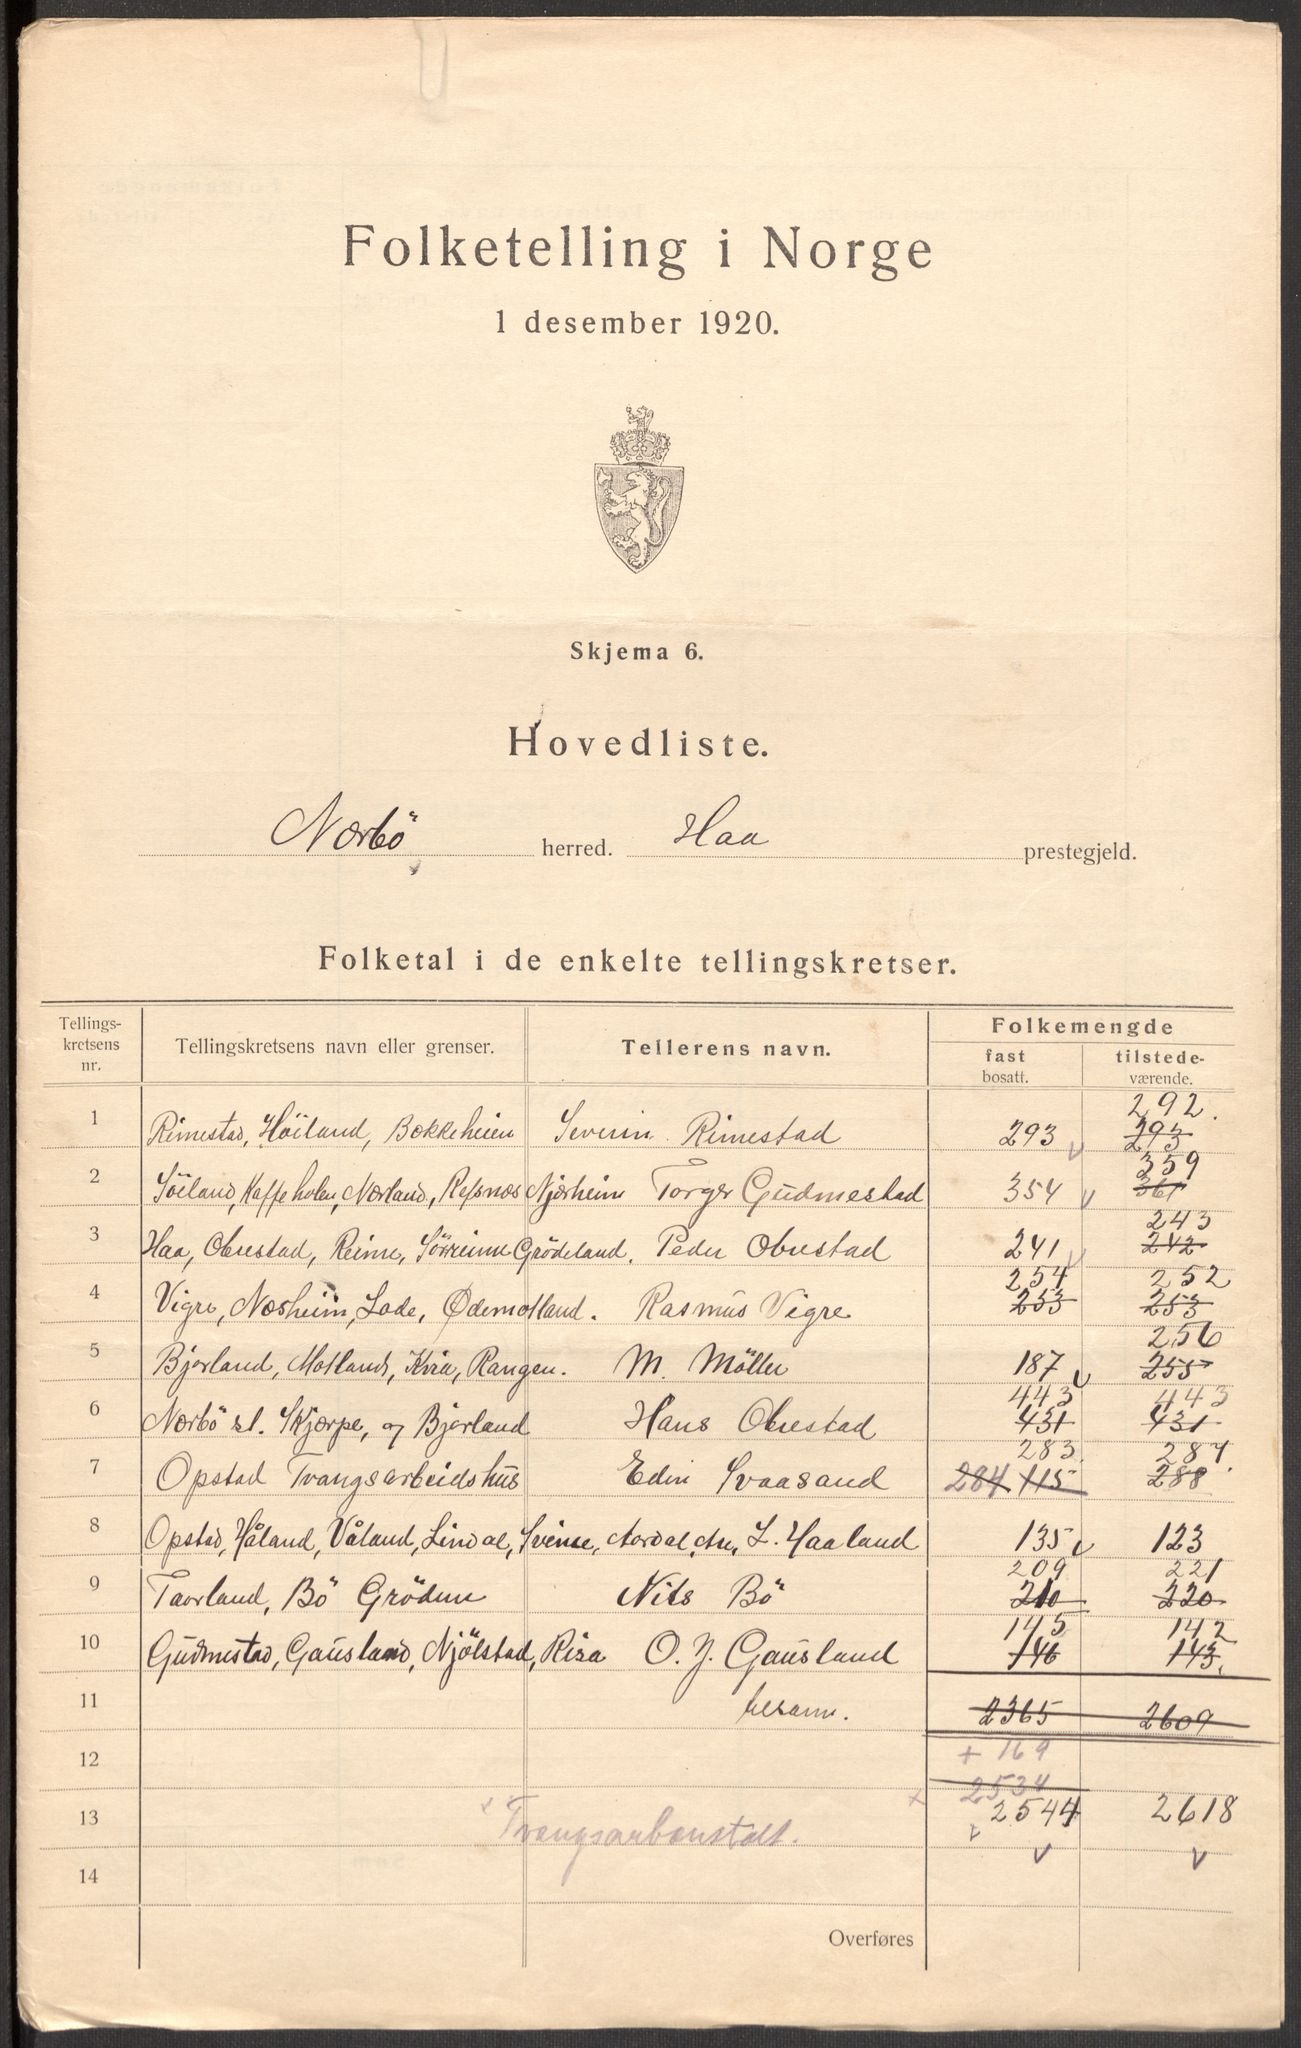 Folketelling i Norge
1 desember 1920.
Skjema 6.
Hovedliste.
Nærbö herred. Haa prestegjeld.
Folketal i de enkelte tellingskretser.
Tellings-kretsens nr. Tellingskretsens navn eller grenser. Tellerens navn. Folkemengde
fast bosatt. tilstede-værende.
292.
1 Rimestad, Höiland, Bokkeheien Severin Rimestad 293 293
359
2 Söiland, Kaffeholen, Nærland, Refsnæs Njærheim Torger Gudmestad 354 361
243
3 Haa, Obrestad, Reime, Sörreime Grödeland. Peder Obrestad 241 242
254 252
4 Vigre, Næsheim, Lode, Ødemotland. Rasmus Vigre 253 253
256
5 Bjorland, Motland, Kvia, Rangen. M. Möller 187 255
443 443
6 Nærbö st. Skjærpe, og Bjorland Hans Obrestad 431 431
283. 287.
7 Opstad Tvangsarbeidshus Edin Svaasand 284 115 288
8 Opstad, Håland, Våland, Lindal, Svinse, Aardal, L. Haaland 135 123
209 221
9 Taarland, Bö Gröden Nils Bö 210 220
145 142
10 Gudmestad, Gausland, Njölstad, Risa O. J. Gausland 146 143.
11 tilsam. 2365 2609
12 + 169
2534
13 × Tvangsarbanstalt. × 2544 2618
14
Overføres